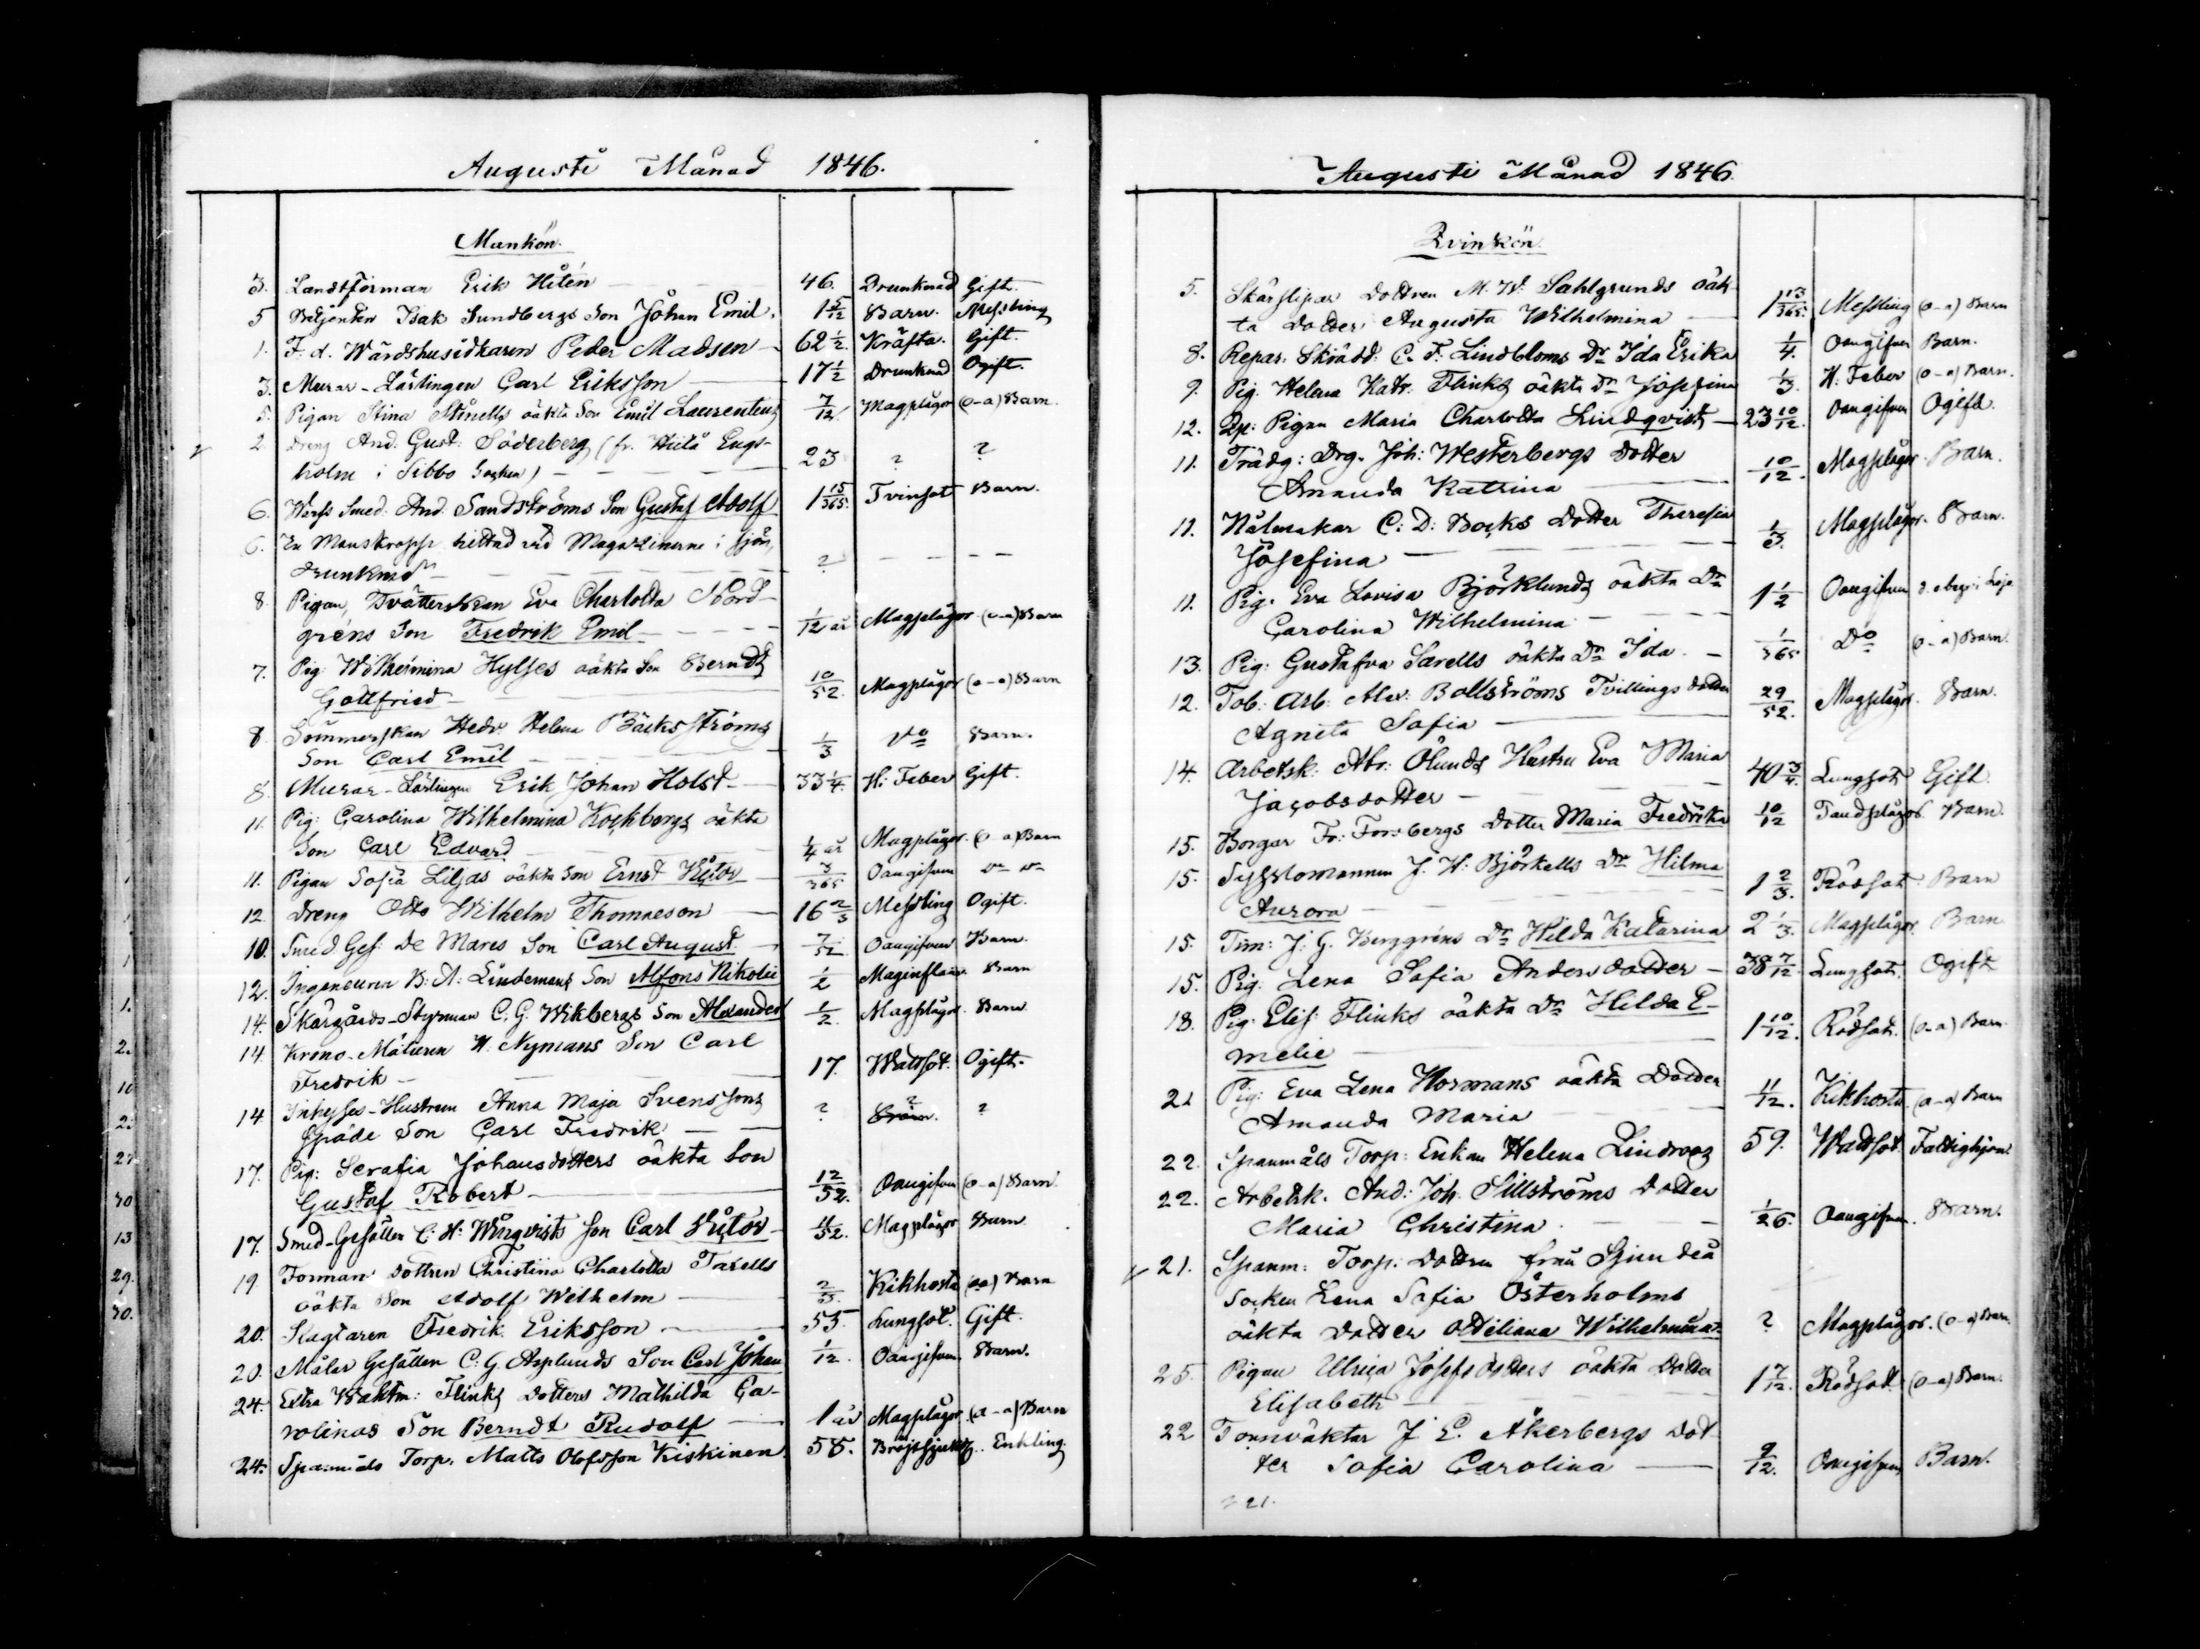 Augusti Månad 1846.
Mankön.
3. Landtförman Erik Hilén 46. Drunknad Gift.
5 Betjenten Isak Sundbergs Son Johan Emil. 1 5/12 Barn. Messling
1. F. d. Wärdshusidkaren Peter Madsen 62 1/2. Kräfta. Gift.
3. Murar-Lärlingen Carl Eriksson 17 1/2 Drunknad Ogift.
5. Pigan Stina Stånells oäkta Son Emil Laurentius 7/12 Magplågor (o-a) Barn.
2 Dreng And. Gust: Söderberg (fr. Hitå Engs-
holm i Sibbo Socken) 23 ? ?
6. Warfs Smed. And. Sandströms Son Gustaf Adolf 1 15/365. Tvinsot Barn.
6. En Manskropp hittad vid Magazinerne i sjön,
drunknad ?
8. Pigan, Tvätterskan Eva Charlotta Nord-
gréns Son Fredrik Emil 1/12 år Magplågor (o-a) Barn
7. Pig: Wilhelmina Hylses oäkta Son Berndt
Gottfried 10/52. Magplågor (o-a) Barn
8. Sömmerskan Hedv. Helena Bäckströms
Son Carl Emil 1/3 Do Barn.
8. Murar-Lärlingen Erik Johan Holst 33 1/4. H: Feber Gift.
11. Pig: Carolina Wilhelmina Koskbergs oäkta
Son Carl Edvard 1/4 år Magplågor. (o-a) Barn
11. Pigan Sofia Liljas oäkta Son Ernst Victor 3/365 Oangifven Do Do
12 Dreng Otto Wilhelm Thomaeson 16 2/3 Messling Ogift.
10. Smed Ges: De Mares Son Carl August 7/52 Oangifven Barn.
12. Ingeneuren B: A: Lindemans Son Alfons Nikolai 1/2 Maginflam. Barn
14. Skärgårds-Styrman C. G. Wikbergs Son Alexander 1/2. Magplågor. Barn
14. Krono-Mätaren W. Nymans Son Carl
Fredrik 17. Wattsot. Ogift.
14 Inhyses-Hustrun Anna Maja Svenssons
späde Son Carl Fredrik ? ? ?
17. Pig: Serafia Johansdotters oäkta Son
Gustaf Robert 12/52. Oangifven (o-a) Barn.
17. Smed-Gesällen C. W: Winqvists Son Carl Victor 11/52. Magplågor Barn
19 Forman Dottren Christina Charlotta Tarells
oäkta Son Adolf Wilhelm Kikhosta (oa) Barn
20. Slagtaren Fredrik Eriksson 53. Lungsot. Gift.
20. Målar Gesällen C. G. Asplunds Son Carl Johan 1/12. Oangifven. Barn.
24. Extra Waktm: Flinks Dotters Mathilda Ca-
rolinas Son Berndt Rudolf 1 år Magplågor (o-a) Barn
24. Spanmåls Torp. Matts Olofsson Kiskinen. 58. Bröstsjukd. Enkling.
Augusti Månad 1846.
Qvinkön.
5. Skärslipar Dottren M. W. Sahlgrunds oäk-
ta Dotter Augusta Wilhelmina 1 13/365. Messling (o-a) Barn
8. Repar. Skrädd: C. F. Lindbloms Dr Ida Erika 1/4. Oangifven Barn.
9. Pig. Helena Katr. Flinks oäkta Dr Josefina 1/3 H. Feber (o-a) Barn.
12. Qp: Pigan Maria Charlotta Lindqvist 23 10/12. Oangifven Ogift.
11. Trädg: Drg. Joh: Westerbergs Dotter
Amanda Katrina 10/12. Magplågor Barn.
11. Nålmakar C: D: Bocks Dotter Theresia
Josefina 1/3. Magplågor. Barn.
11. Pig. Eva Lovisa Björklunds oäkta Dr
Carolina Wilhelmina 1 1/2 Oangifven
13. Pig: Gustafva Sarells oäkta Dr Ida. 1/365 Do (o-a) Barn.
12. Tob. Arb. Alex: Bollströms Tvillings dotter
Agneta Sofia 29/52. Magplågor. Barn.
14. Arbetsk. Abr: Ölunds Hustru Eva Maria
Jacobsdotter 40 3/4. Lungsot. Gift.
15. Borgar Fr: Forsbergs Dotter Maria Fredrika 10/12 Tandplågor. Barn.
15. Sysslomannen J. H. Björkells Dr Hilma
Aurora 1 2/3. Rödsot. Barn
15. Tim: J. G. Berggréns Dr Hilda Katarina 2 1/3. Magplågor. Barn
15. Pig. Lena Sofia Andersdotter 38 7/12. Lungsot. Ogift
18. Pig. Elis. Flinks oäkta Dr Hilda E-
melie 1 10/12. Rödsot. (o-a) Barn.
21 Pig: Eva Lena Normans oäkta Dotter
Amanda Maria 11/12. Kikhosta. (o-a) Barn
22. Spanmåls Torp: Enkan Helena Lindroos 59. Wattsot. Fattighjon.
22. Arbetsk. And: Joh. Sillströms Dotter
Maria Christina 1/26. Oangifven. Barn.
21. Spanm: Torp: Dottren från Sjundeå
Socken Lena Sofia Österholms
oäkta Dotter Ottiliana Wilhelmina. ? Magplågor. (o-a) Barn.
25. Pigan Ulrica Josefsdotters oäkta Dotter
Elisabeth 1 7/12. Rödsot. (o-a) Barn.
22 Tornväktar J. E. Åkerbergs Dot-
ter Sofia Carolina 9/12. Oangifven Barn.